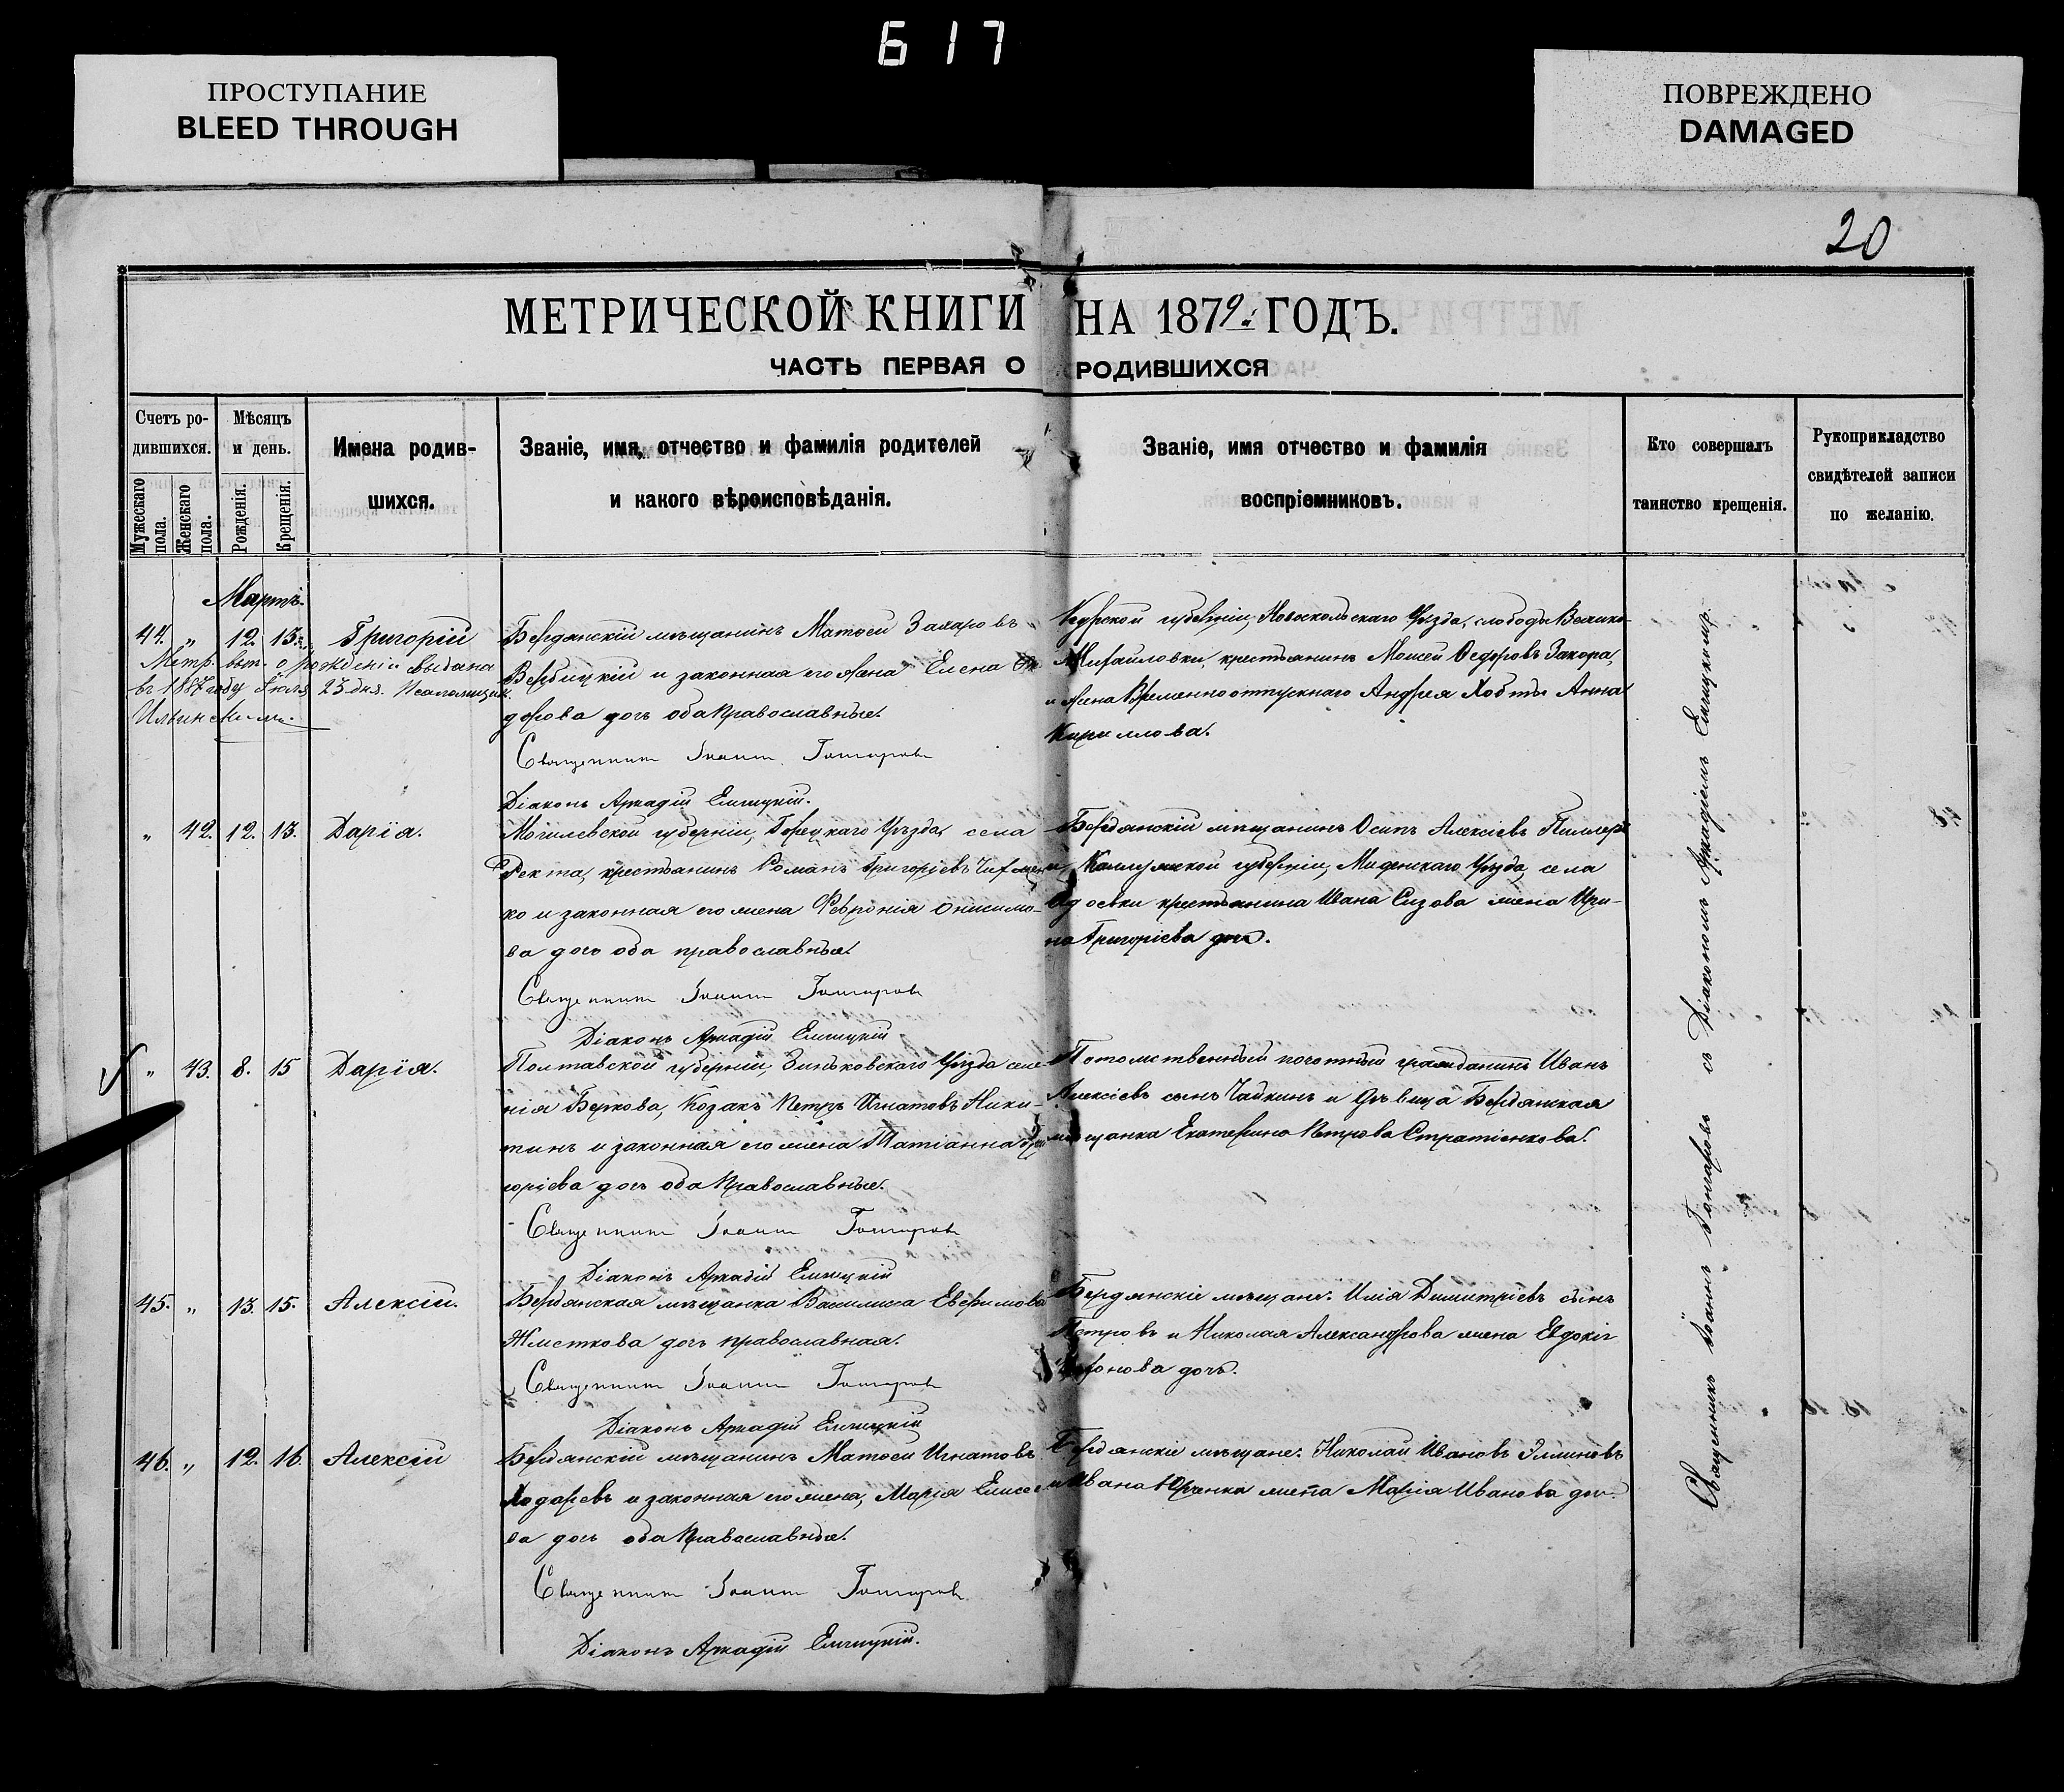 617
ПРОСТУПАНИЕ
BLEED THROUGH
ПОВРЕЖДЕНО
DAMAGED
20
МЕТРИЧЕСКОЙ КНИГИ НА 1879 ГОДЪ.
ЧАСТЬ ПЕРВАЯ О РОДИВШИХСЯ
Счетъ ро-
дившихся.
Мужескаго пола.
Женскаго пола.
Мѣсяцъ
и день.
Рожденія.
Крещенія.
Имена родив-
шихся.
Званіе, имя, отчество и фамилія родителей
и какого вѣроисповѣданія.
Званіе, имя отчество и фамилія
воспріемниковъ.
Кто совершалъ
таинство крещенія.
Рукоприкладство
свидѣтелей записи
по желанію.
Мартъ.
44. „ 12. 13. Григорій
Метр. вып. о рожденіи выдана
въ 1887 году Іюля 23 дня.
Бердянскій мѣщанинъ Матѳей Захаровъ
Вербицкій и законная его жена Елена Ѳе
дорова дочь оба Православные.
Священникъ Іоаннъ Гончаровъ
Діаконъ Аркадій Елицкій.
Курской губерніи, Новоскольскаго Уѣзда, слободы Велико-
Михайловки, крестьянинъ Моисей Ѳедоровъ Закора,
и жена Временноотпускнаго Андрея Хобты Анна
Кириллова.
„ 42. 12. 13. Дарія.
Могилевской губерніи, Горецкаго Уѣзда, села
Ректа, крестьянинъ Романъ Григорьевъ
ко и законная его жена Февронія Онисимо-
ва дочь оба православные.
Священникъ Іоаннъ Гончаровъ
Діаконъ Аркадій Елицкій
Бердянскій мѣщанинъ Осипъ Алексіевъ
и Калужской губерніи, Уѣзда, села
крестьянина Ивана Сизова жена Ири-
на Григорієва дочь.
„ 43. 8. 15 Дарія.
Полтавской губерніи, Зиньковскаго Уѣзда селе-
нія Бѣркова, Козакъ Петръ Игнатовъ Ники-
тинъ и законная его жена Татіанна Гри
горіева дочь оба Православные.
Священникъ Іоаннъ Гончаровъ
Діаконъ Аркадій Елицкій
Потомственный почотный гражданинъ Иванъ
Алексіевъ сынъ Чайкинъ и дѣвица Бердянская
мѣщанка Екатерина Петрова Стратіенкова.
45. „ 13. 15. Алексій.
Бердянская мѣщанка Василиса Евфимова
дочь православная.
Священникъ Іоаннъ Гончаровъ
Діаконъ Аркадій Елицкій
Бердянскіе мѣщане: Илія Димитріевъ сынъ
Петровъ и Николая Александрова жена Евдокія
дочь.
46. „ 12. 16. Алексій
Бердянскій мѣщанинъ Матѳей Игнатовъ
Ходаревъ и законная его жена, Марія Елисее
ва дочь оба Православные.
Священникъ Іоаннъ Гончаровъ
Діаконъ Аркадій Елицкій.
Бердянскіе мѣщане: Николай Ивановъ
и Ивана жена Марія Иванова дочь.
Священникъ Іоаннъ Гончаровъ съ Діакономъ Аркадіемъ Елицкимъ.